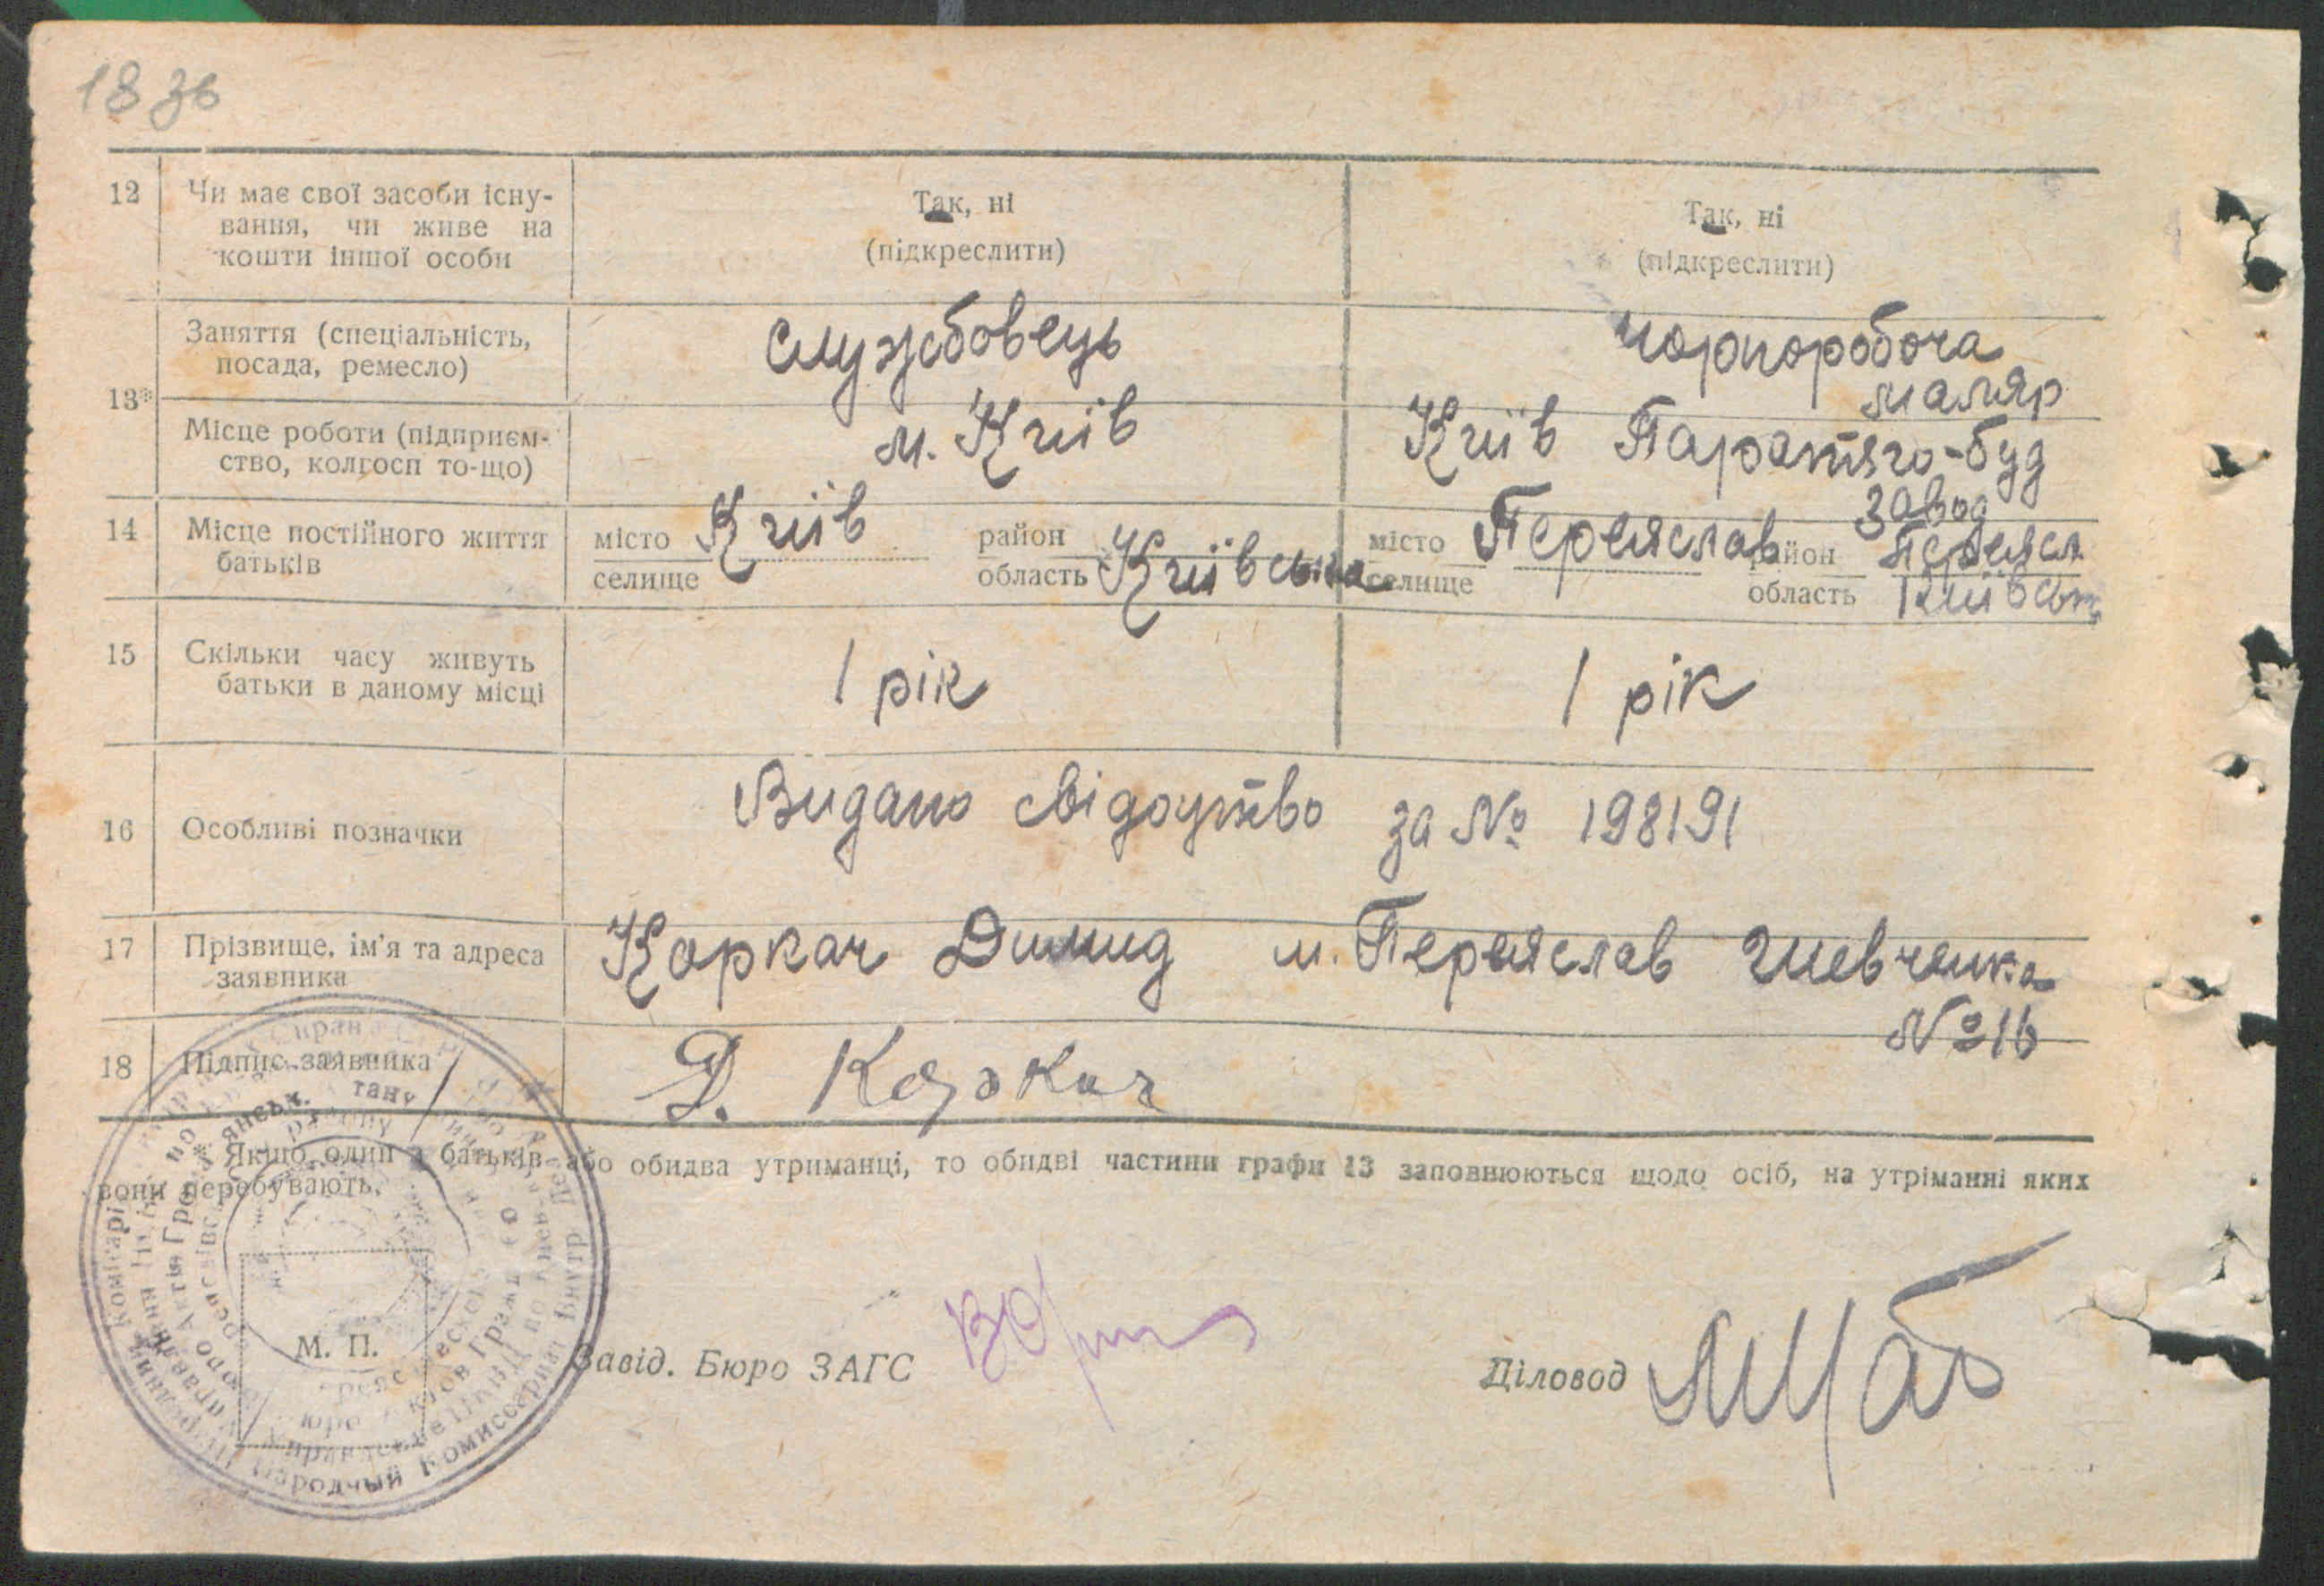 18 зв
12 Чи має свої засоби існу-
вання, чи живе на
кошти іншої особи
Так, ні
(підкреслити)
Так, ні
(підкреслити)
13*
Заняття (спеціальність,
посада, ремесло)
службовець
чорноробоча
маляр
Місце роботи (підприєм-
ство, колгосп то-що)
м. Київ
Київ Паратяго-буд
завод
14 Місце постійного життя
батьків
місто Київ
селище
район
область Київська
місто Переяслав
селище
район Переясл
область Київськ
15 Скільки часу живуть
батьки в даному місці
1 рік
1 рік
16 Особливі позначки
Видано свідоцтво за № 198191
17 Прізвище, ім'я та адреса
заявника
Коркач Димид м. Переяслав Шевченка
№ 16
18 Підпис заявника
Д. Коркач
* Якщо один з батьків або обидва утриманці, то обидві частини графи 13 заповнюються щодо осіб, на утріманні яких
вони перебувають.
М. П.
Завід. Бюро ЗАГС
Діловод
Народный Комиссариат Внутр